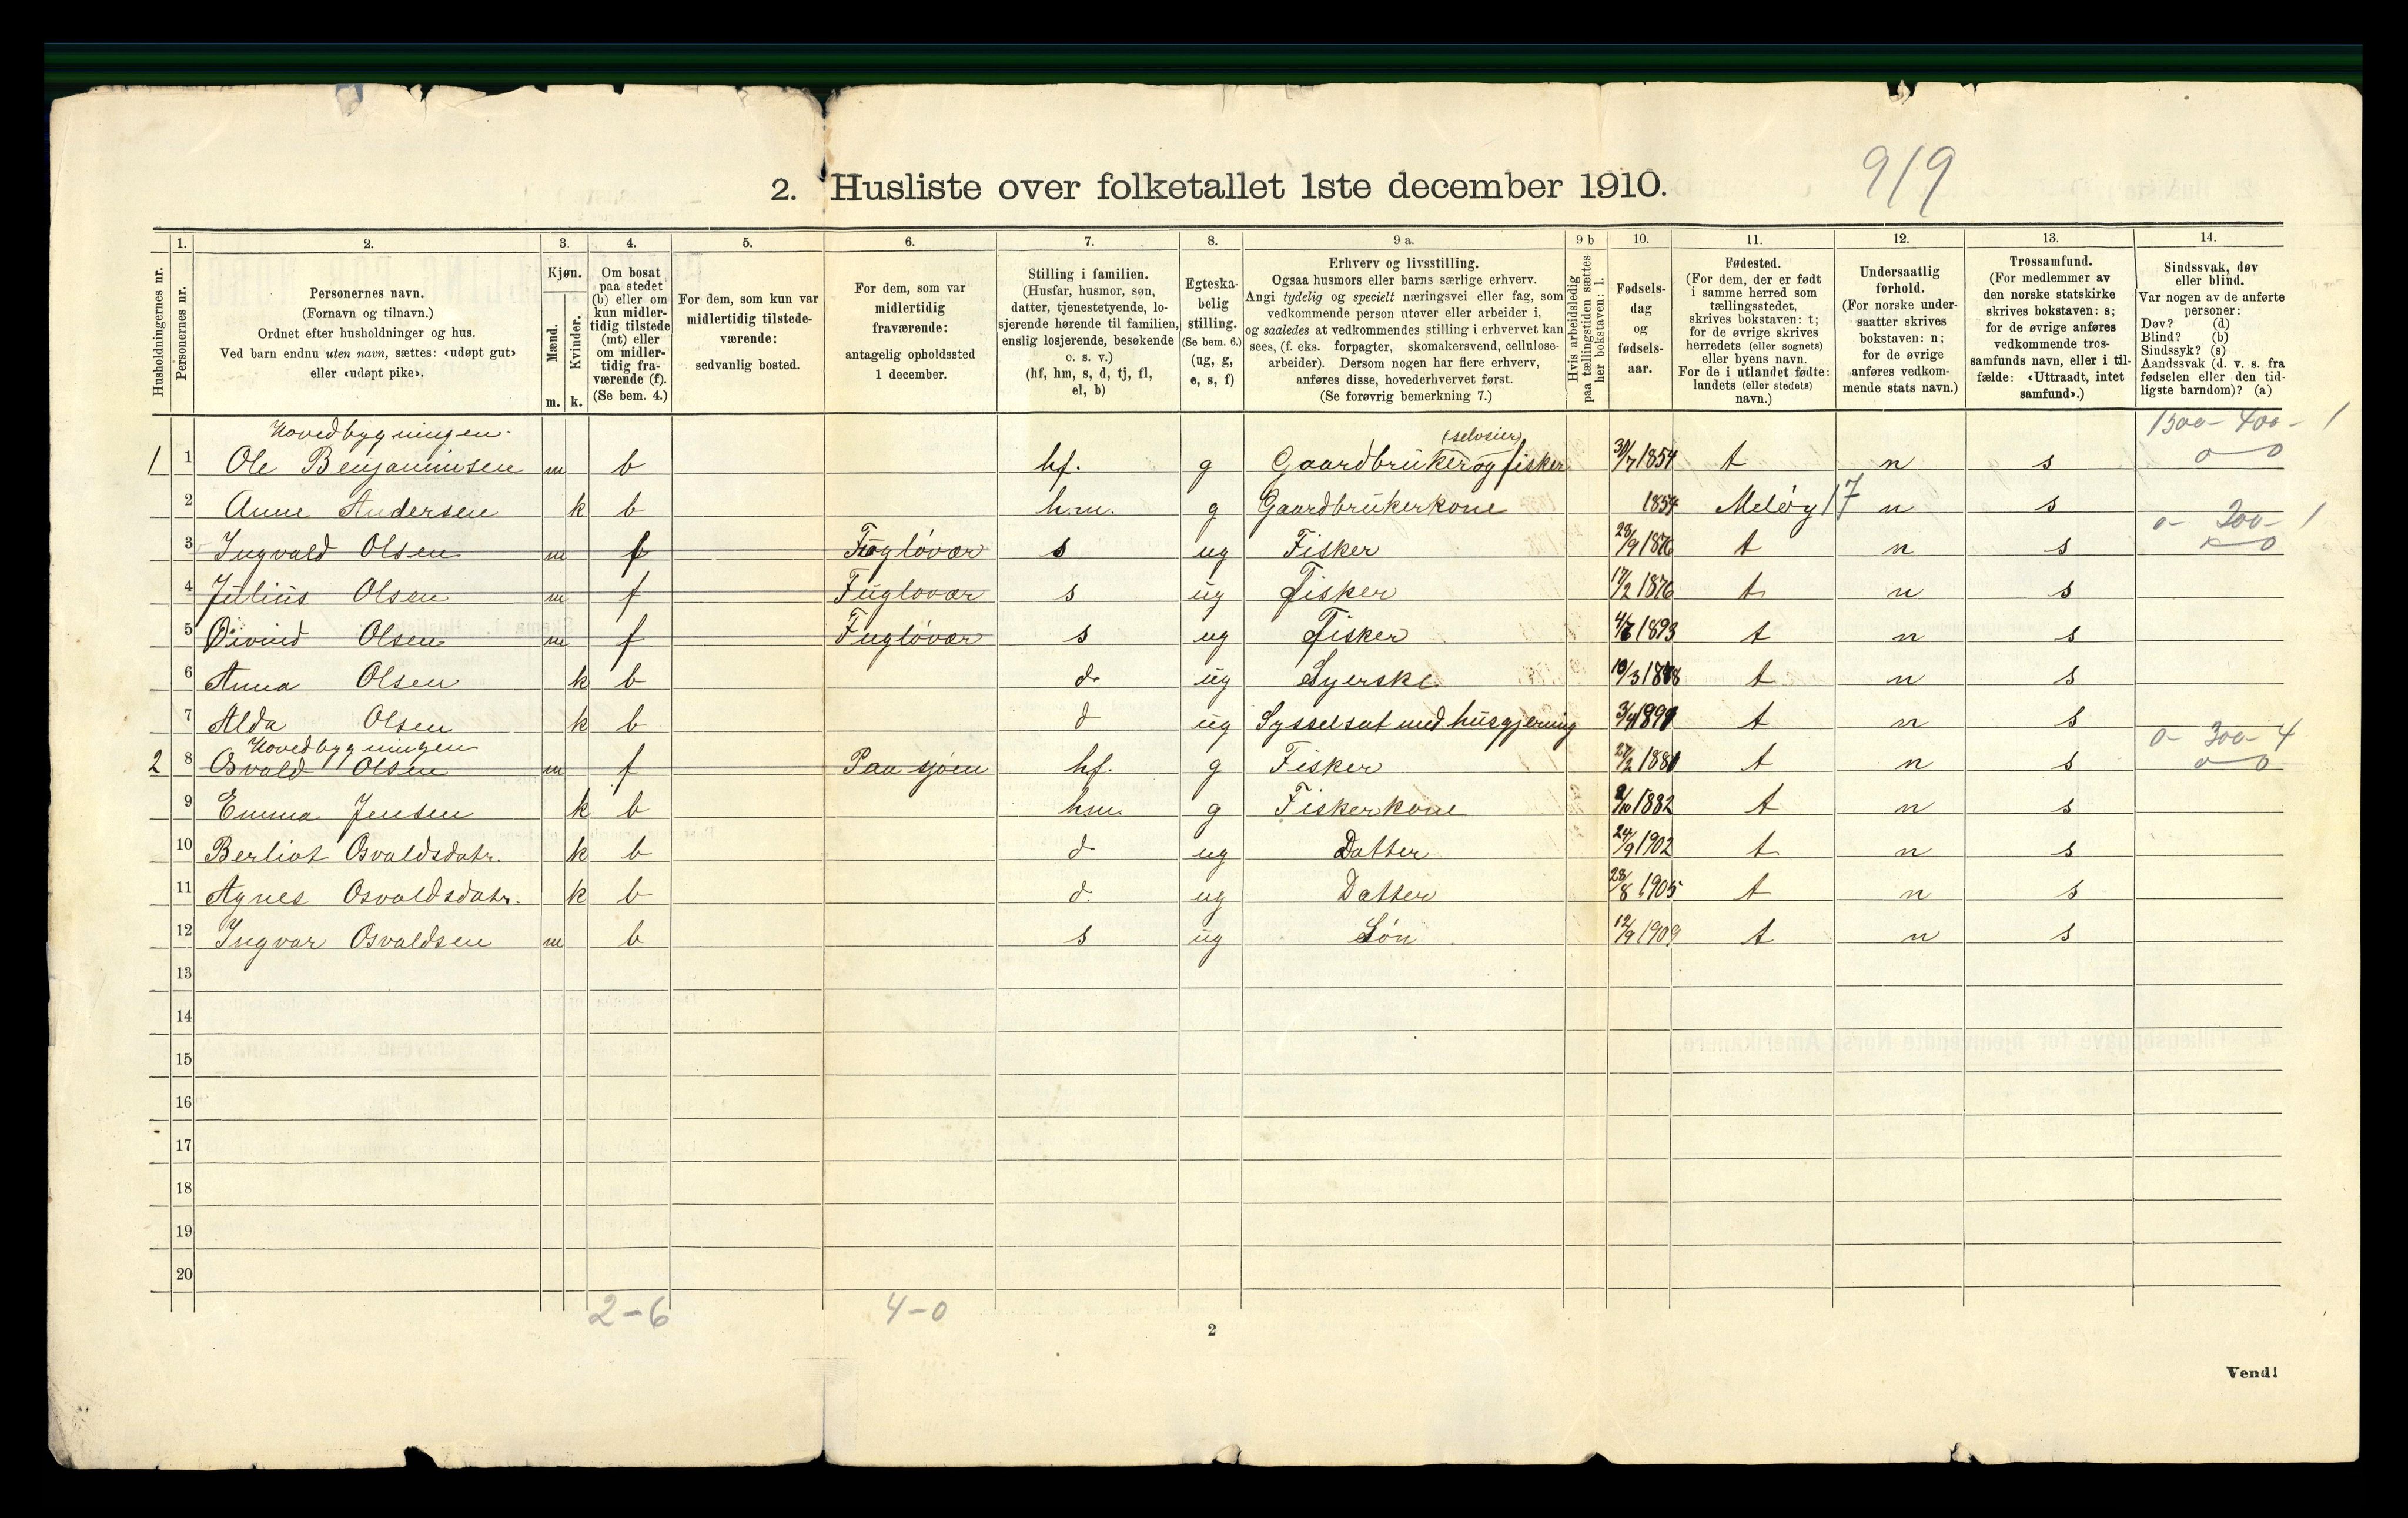 9/9
2. Husliste over folketallet 1ste december 1910.
Husholdningernes nr.
1. Personernes nr.
2. Personernes navn. (Fornavn og tilnavn.) Ordnet efter husholdninger og hus. Ved barn endnu uten navn, sættes: «udøpt gut» eller «udøpt pike».
3. Kjøn. Mænd. m. Kvinder. k.
4. Om bosat paa stedet (b) eller om kun midlertidig tilstede (mt) eller om midlertidig fraværende (f). (Se bem. 4.)
5. For dem, som kun var midlertidig tilstedeværende: sedvanlig bosted.
6. For dem, som var midlertidig fraværende: antagelig opholdssted 1 december.
7. Stilling i familien. (Husfar, husmor, søn, datter, tjenestetyende, losjerende hørende til familien, enslig losjerende, besøkende o. s. v.) (hf, hm, s, d, tj, fl, el, b)
8. Egteskabelig stilling. (Se bem. 6.) (ug, g, e, s, f)
9 a. Erhverv og livsstilling. Ogsaa husmors eller barns særlige erhverv. Angi tydelig og specielt næringsvei eller fag, som vedkommende person utøver eller arbeider i, og saaledes at vedkommendes stilling i erhvervet kan sees, (f. eks. forpagter, skomakersvend, cellulosearbeider). Dersom nogen har flere erhverv, anføres disse, hovederhvervet først. (Se forøvrig bemerkning 7.)
9 b Hvis arbeidsledig paa tællingstiden sættes her bokstaven: l.
10. Fødselsdag og fødselsaar.
11. Fødested. (For dem, der er født i samme herred som tællingsstedet, skrives bokstaven: t; for de øvrige skrives herredets (eller sognets) eller byens navn. For de i utlandet fødte: landets (eller stedets) navn.)
12. Undersaatlig forhold. (For norske undersaatter skrives bokstaven: n; for de øvrige anføres vedkommende stats navn.)
13. Trossamfund. (For medlemmer av den norske statskirke skrives bokstaven: s; for de øvrige anføres vedkommende trossamfunds navn, eller i tilfælde: «Uttraadt, intet samfund».)
14. Sindssvak, døv eller blind. Var nogen av de anførte personer: Døv? (d) Blind? (b) Sindssyk? (s) Aandssvak (d. v. s. fra fødselen eller den tidligste barndom)? (a)
Hovedbygningen. (selveier) 1500 - 400 - 1
1 1 Ole Benjaminsen m b hf. g Gaardbruker og fisker 30/7 1854 t n s 0 0
2 Anne Andersen k b h.m. g Gaardbrukerkone 1854 Meløy 17 n s
0 - 200 - 1
3 Ingvald Olsen m f Fugløvær s ug Fisker 28/9 1876 t n s 0
4 Julius Olsen m f Fugløvær s ug Fisker 17/2 1876 t n s
5 Øivind Olsen m f Fugløvær s ug Fisker 1893 t n s
6 Anna Olsen k b d. ug Syerske t n s
7 Alda Olsen k b d ug Sysselsat med husgjerning t n s
Hovedbygningen 0 - 300 - 4
2 8 Osvald Olsen m f Paa sjøen hf. g Fisker 27/2 t n s 0 0
9 Emma Jensen k b hm. g Fiskerkone 1882 t n s
10 Berliot Osvaldsdatr. k b d ug Datter 24/9 1902 t n s
11 Agnes Osvaldsdatr. k b d. ug Datter 28/8 1905 t n s
12 Ingvar Osvaldsen m b s ug Søn 12/9 1909 t n s
13
14
15
16
17
18
19
20
2-6 4-0
2
Vend!